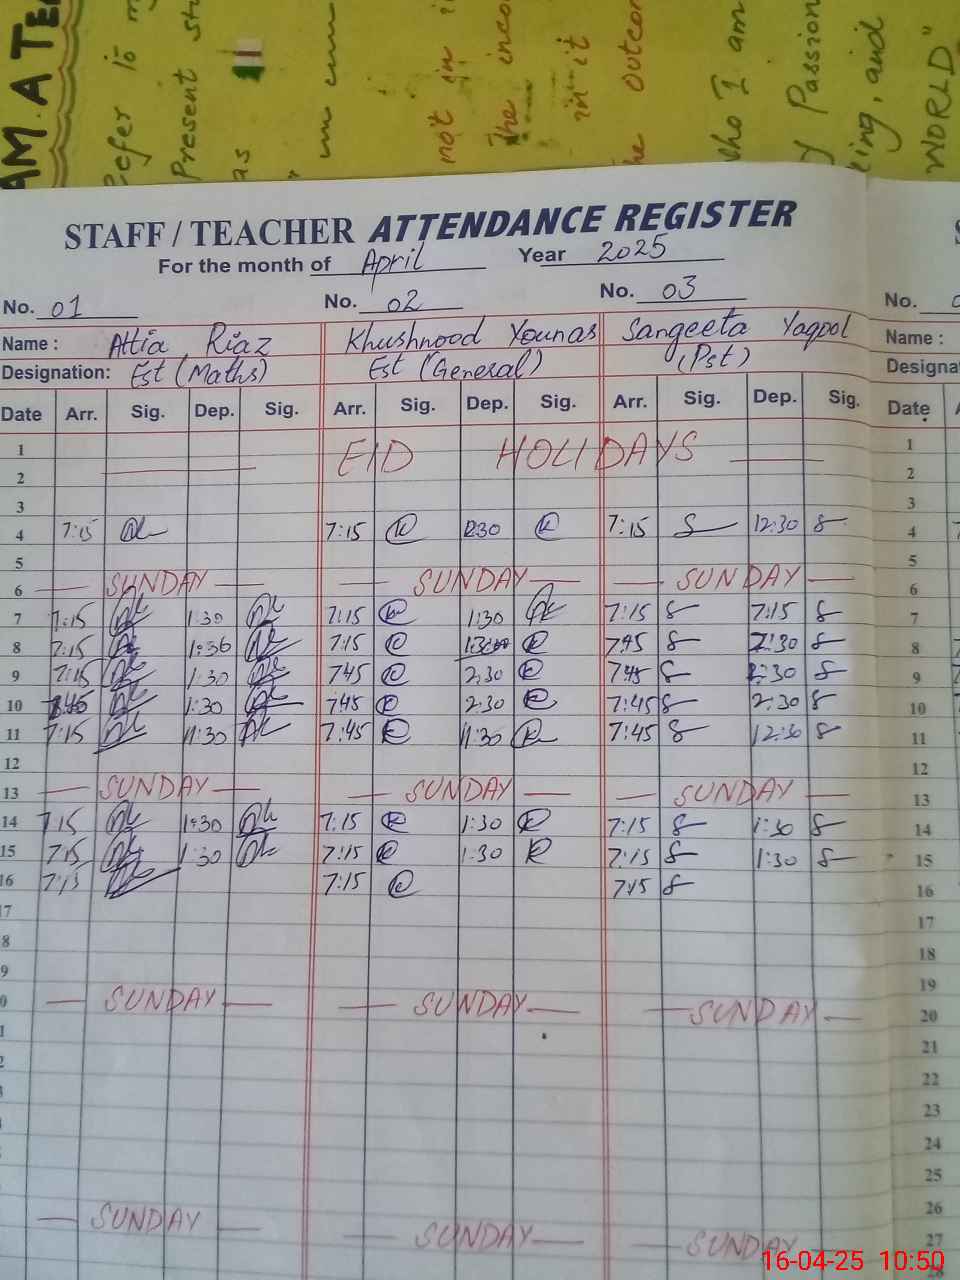 AM.A TE
efer to m
Present st
as
um
not in i
The inco
in it
he outcon
who I am
y Passion
ing, and
WORLD"
STAFF / TEACHER ATTENDANCE REGISTER
For the month of April Year 2025
No. 01 No. 02 No. 03 No.
Name : Attia Riaz Khushnood Younas Sangeeta Yaqool Name :
Designation: Est (Maths) Est (General) (Pst) Designa
Date Arr. Sig. Dep. Sig. Arr. Sig. Dep. Sig. Arr. Sig. Dep. Sig. Date
1 EID HOLIDAYS 1
2 2
3 3
4 7:15 7:15 K 12:30 K 7:15 S 12:30 S 4
5 5
6 SUNDAY SUNDAY SUNDAY 6
7 7:15 1:30 7:15 K 1:30 7:15 S 7:15 S 7
8 7:15 1:30 7:15 K K 7:45 S 2:30 S 8
9 7:15 1:30 745 K 2:30 K 7:45 S 2:30 S 9
10 1:30 745 K 2:30 K 7:45 S 2:30 S 10
11 7:15 11:30 7:45 K 11:30 K 7:45 S 12:30 S 11
12 12
13 SUNDAY SUNDAY SUNDAY 13
14 7:15 1:30 7:15 K 1:30 K 7:15 S 1:30 S 14
15 7:15 1:30 7:15 K 1:30 K 7:15 S 1:30 S 15
16 7:15 7:15 K 7:15 S 16
17 17
8 18
9 19
0 SUNDAY SUNDAY SUNDAY 20
1 21
2 22
23
24
25
26
SUNDAY SUNDAY SUNDAY 27
28
16-04-25 10:50